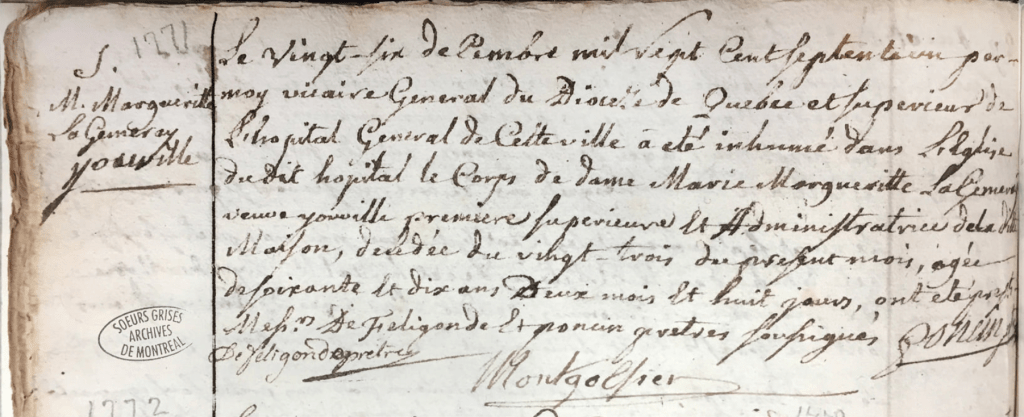 1771
S.
M. Margueritte
La Gemeray
youville
Le vingt-six decembre mil sept Cent septente un par
moy vicaire General du Diocese de Quebec et superieur de
L'hopital General de Cette ville a eté inhumé dans L'Eglise
du dit hopital le Corps de dame Marie Margueritte La Gemeray
veuve youville premiere superieure et Administratrice de la dite
Maison, decedée du vingt-trois du present mois, agée
de soixante et dix ans Deux mois et huit jours, ont eté pres
Mess.rs De Feligonde et poncin pretres soussignés
De Feligonde pretre
poncin
Montgolfier
SOEURS GRISES
ARCHIVES
DE MONTREAL
1772